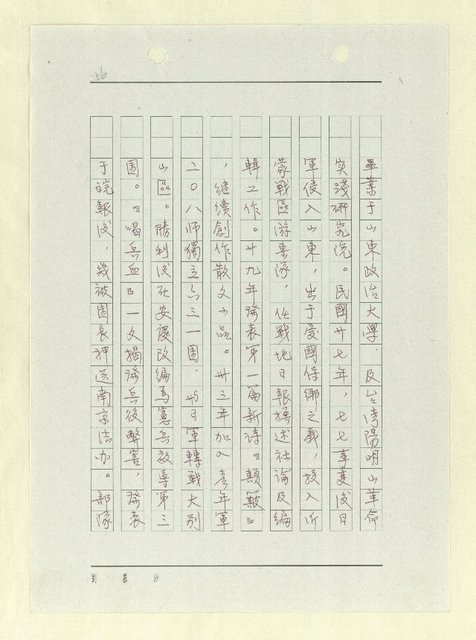 56
畢業于山東政治大學，及台灣陽明山革命
實踐研究院。民國廿七年，七七事變後日
軍侵入山東，出于愛國保鄉之義，投入
蒙戰區游東隊，任戰地日報撰述社論及編
輯工作。廿九年發表第一篇新詩『顛簸』
，繼續創作散文小品。卅三年加入青年軍
二〇八師獨立六三一團，與日軍轉戰大別
山區。勝利後在安慶改編為憲兵教導第三
團。『喝兵血』一文揭發兵役弊害，發表
于皖報後，幾被團長押送南京法辦。部隊
劉慕沙